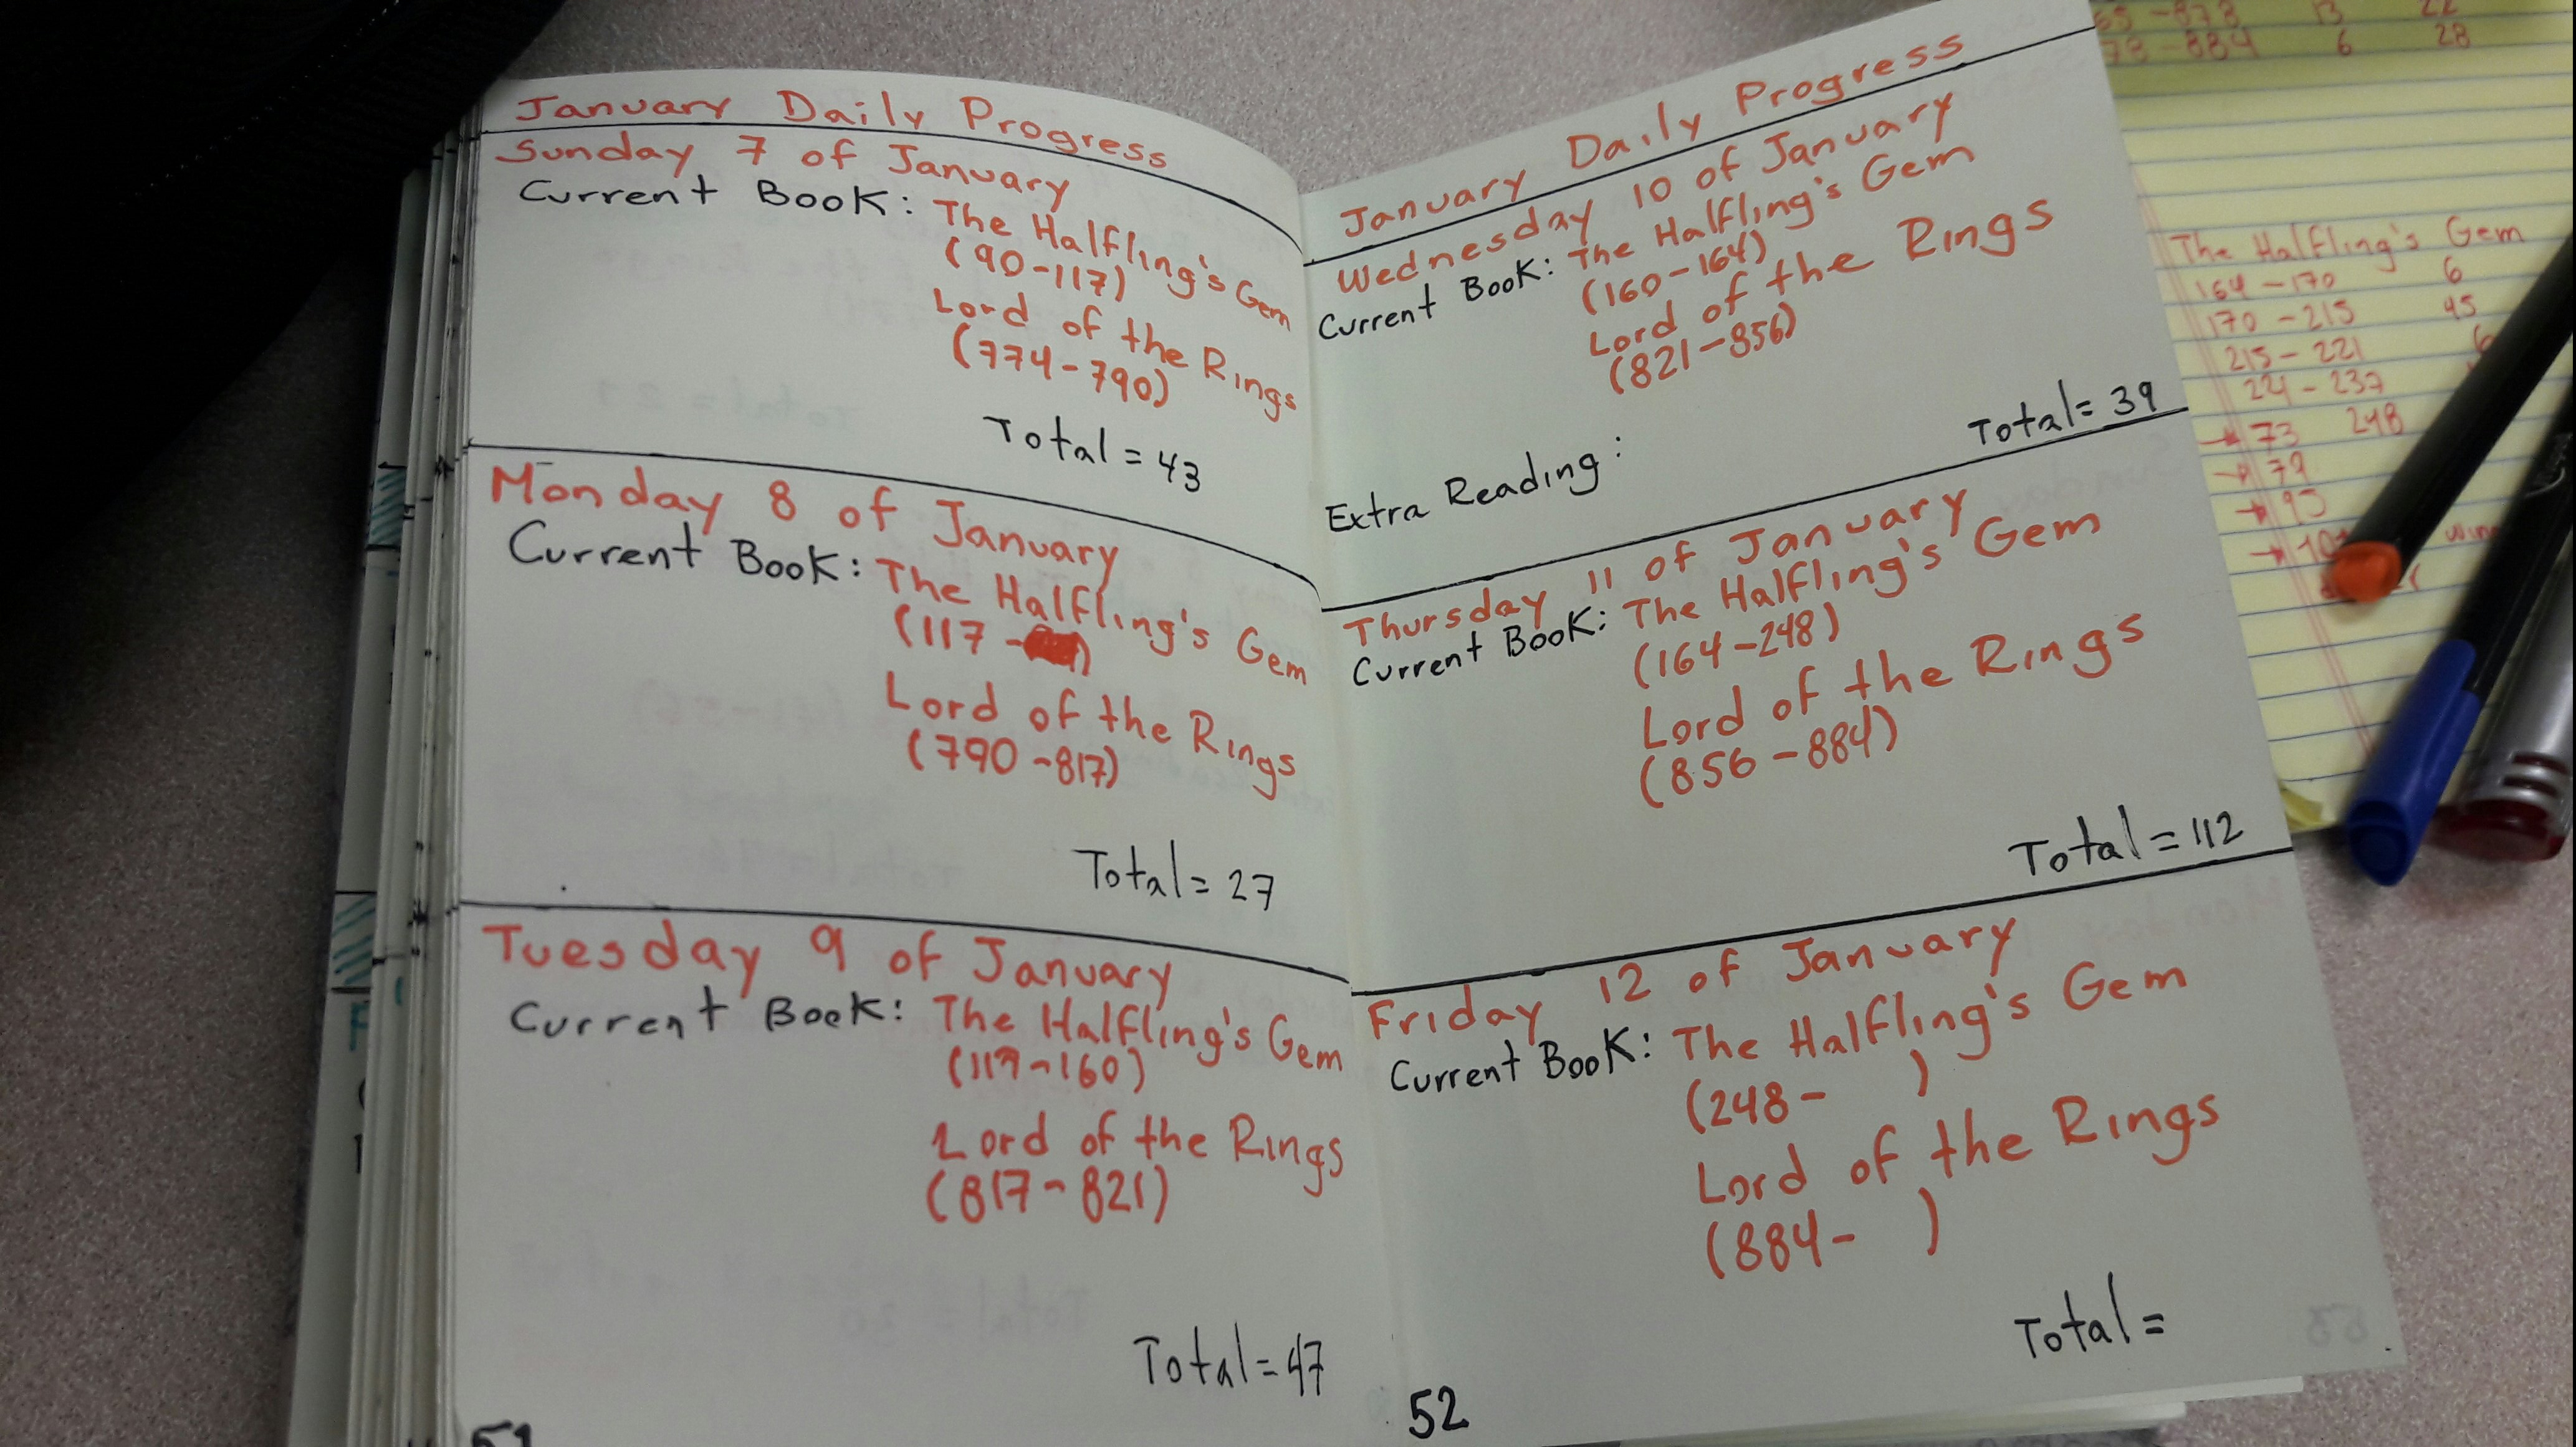 January Daily Progress
Sunday 7 of January
Current Book: The Halfling's Gem
(90-117)
Lord of the Rings
(774-790)
Total = 43
Monday 8 of January
Current Book: The Halfling's Gem
(117 - )
Lord of the Rings
(790-817)
Total = 27
Tuesday 9 of January
Current Book: The Halfling's Gem
(117-160)
Lord of the Rings
(817-821)
Total = 47
51
January Daily Progress
Wednesday 10 of January
Current Book: The Halfling's Gem
(160-164)
Lord of the Rings
(821-856)
Total = 39
Extra Reading:
Thursday 11 of January
Current Book: The Halfling's Gem
(164-248)
Lord of the Rings
(856-884)
Total = 112
Friday 12 of January
Current Book: The Halfling's Gem
(248- )
Lord of the Rings
(884- )
Total =
52
-878 13 22
78-884 6 28
The Halfling's Gem
164-170 6
170-215 45
215-221 6
221-237
→ 73 248
→ 79
→ 95